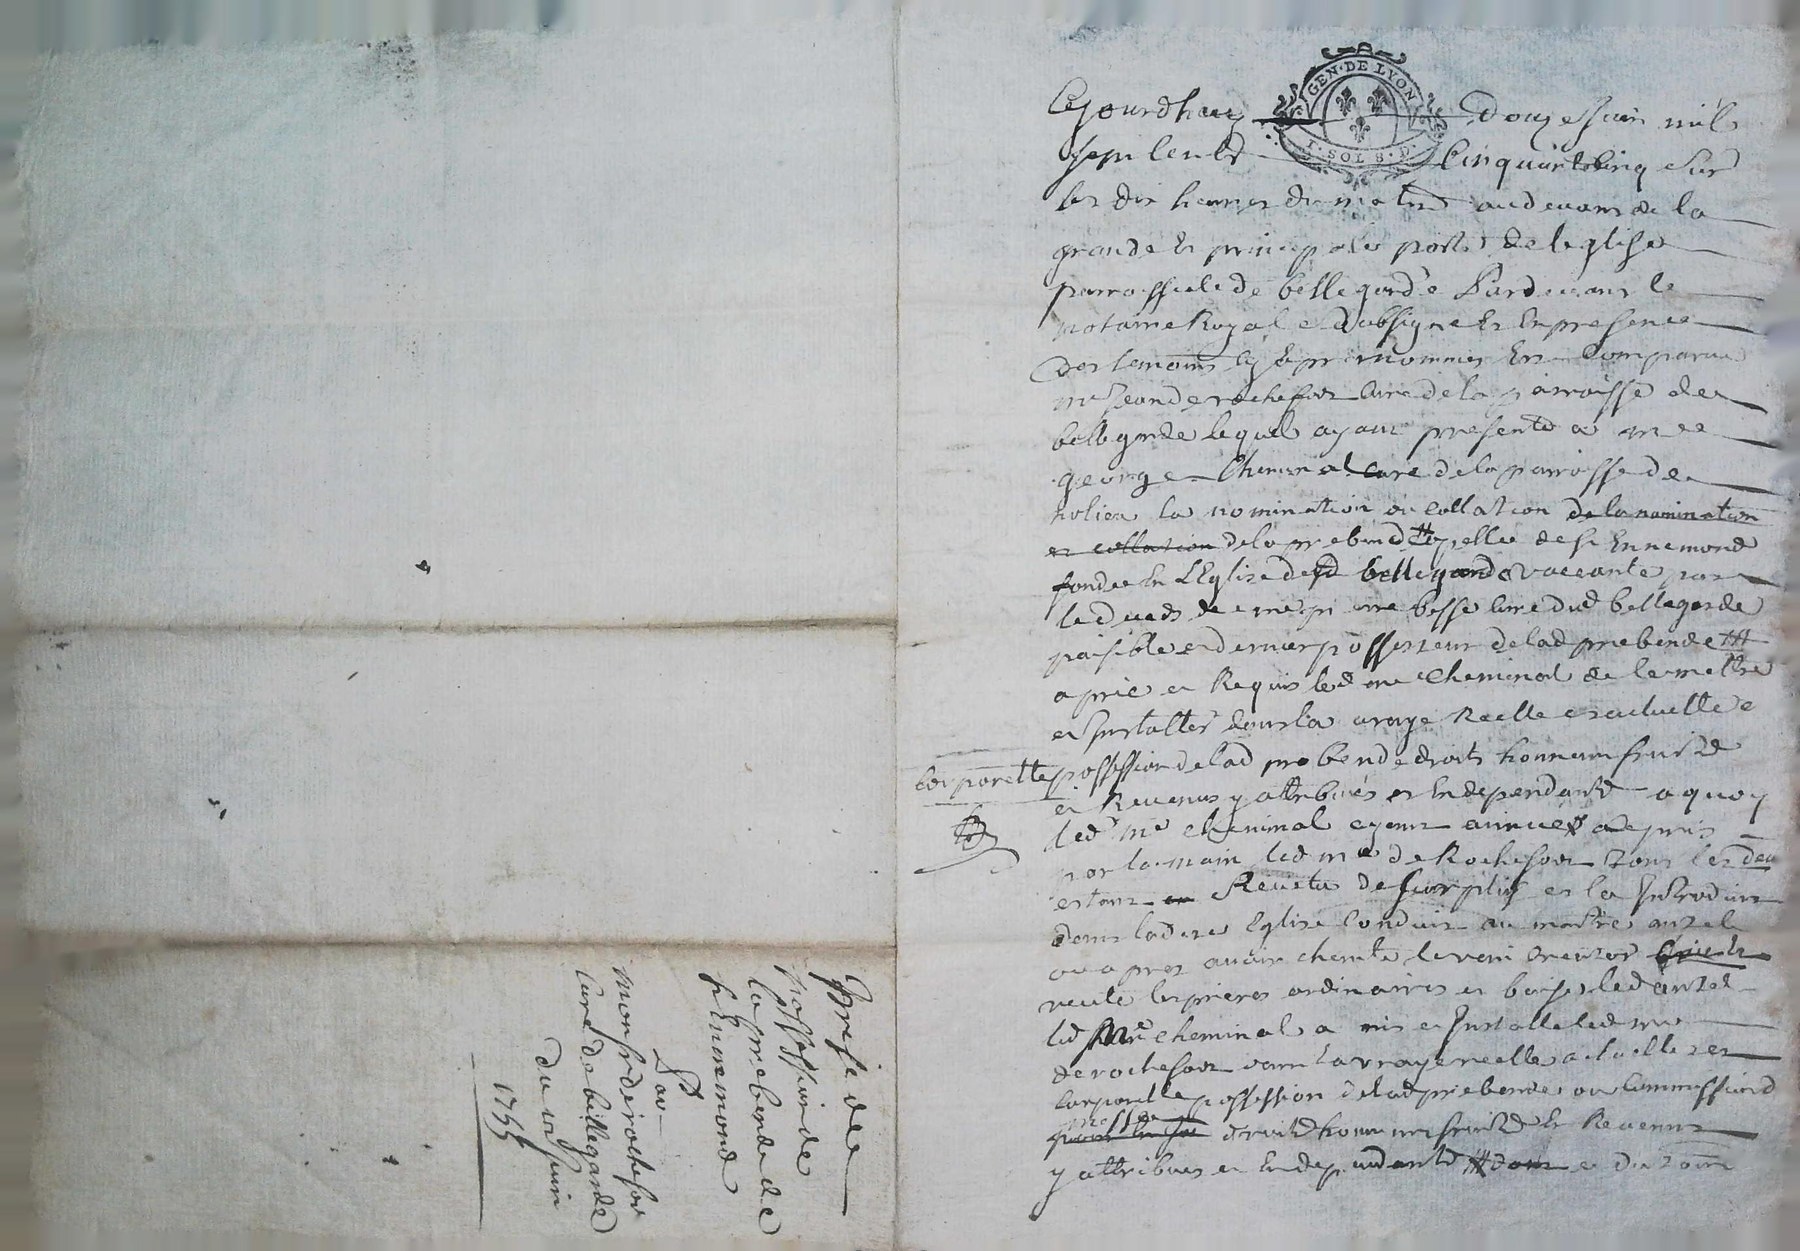 GEN·DE LYON
I·SOLS·D·
Cejourdhuy douze Juin mil
sept Cents Cinquante Cinq Sur
les dix heures du matin audevant de la
grande et principale porte de leglise
parroissiale de bellegarde Pardevant le
notaire Royal Soubsigné et En presence
des temoins cy apres nommes Est Comparu
mre Jean de rochefort Curé de la parroisse de
bellegarde lequel ayant presenté a mre
george Cheminal Curé de la parroisse de
la nomination ou collation de la nomination
et collation de la prebende appellée de st Ennemond
fondée En LEglise dud bellegarde vaccante par
le deceds de mre besse Curé dud bellegarde
paisible et dernier possesseur de lad prebende
a prié et Requis led mre Cheminal de le mettre
et Installer dans la vraye Reelle et actuelle
corporelle possession de lad prebende droits honneurs fruits
et Revenus y attribués et Independants a quoy
led mre Cheminal ayant a pris
par la main led mre de Rochefort
estant en Revetu de surplis et la Introduit
dans lad Eglise Conduit au maitre autel
ou apres avoir chanté le veni Creator
recité les prieres ordinaires et baisé led autel
led mre cheminal a mis et Installé led mre
de rochefort dans la vraye reelle actuelle et
corporelle possession de lad prebende ou Commission de
messe droits honneurs fruits et Revenus
y attribues et Independants et du tout
Prise de
possession de
la prebende de
st Ennemond
Par
monsr de rochefort
Curé de bellegarde
du 12 Juin
1755